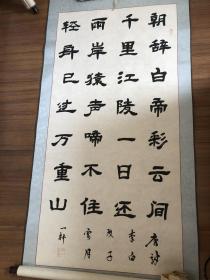 朝辞白帝彩云间 唐诗
千里江陵一日还 李白
两岸猿声啼不住
轻舟已过万重山 一轩